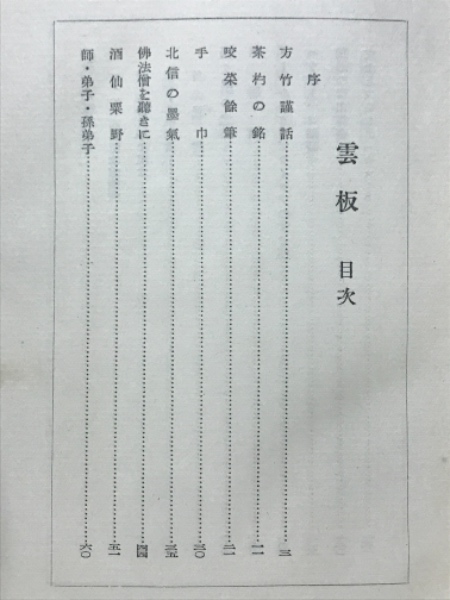 雲板 目次
序
方竹謹話……三
茶杓の銘……一一
咬菜餘筆……二一
手巾……三〇
北信の墨氣……三五
佛法僧を聽きに……四四
酒仙栗野……五一
師・弟子・孫弟子……六〇